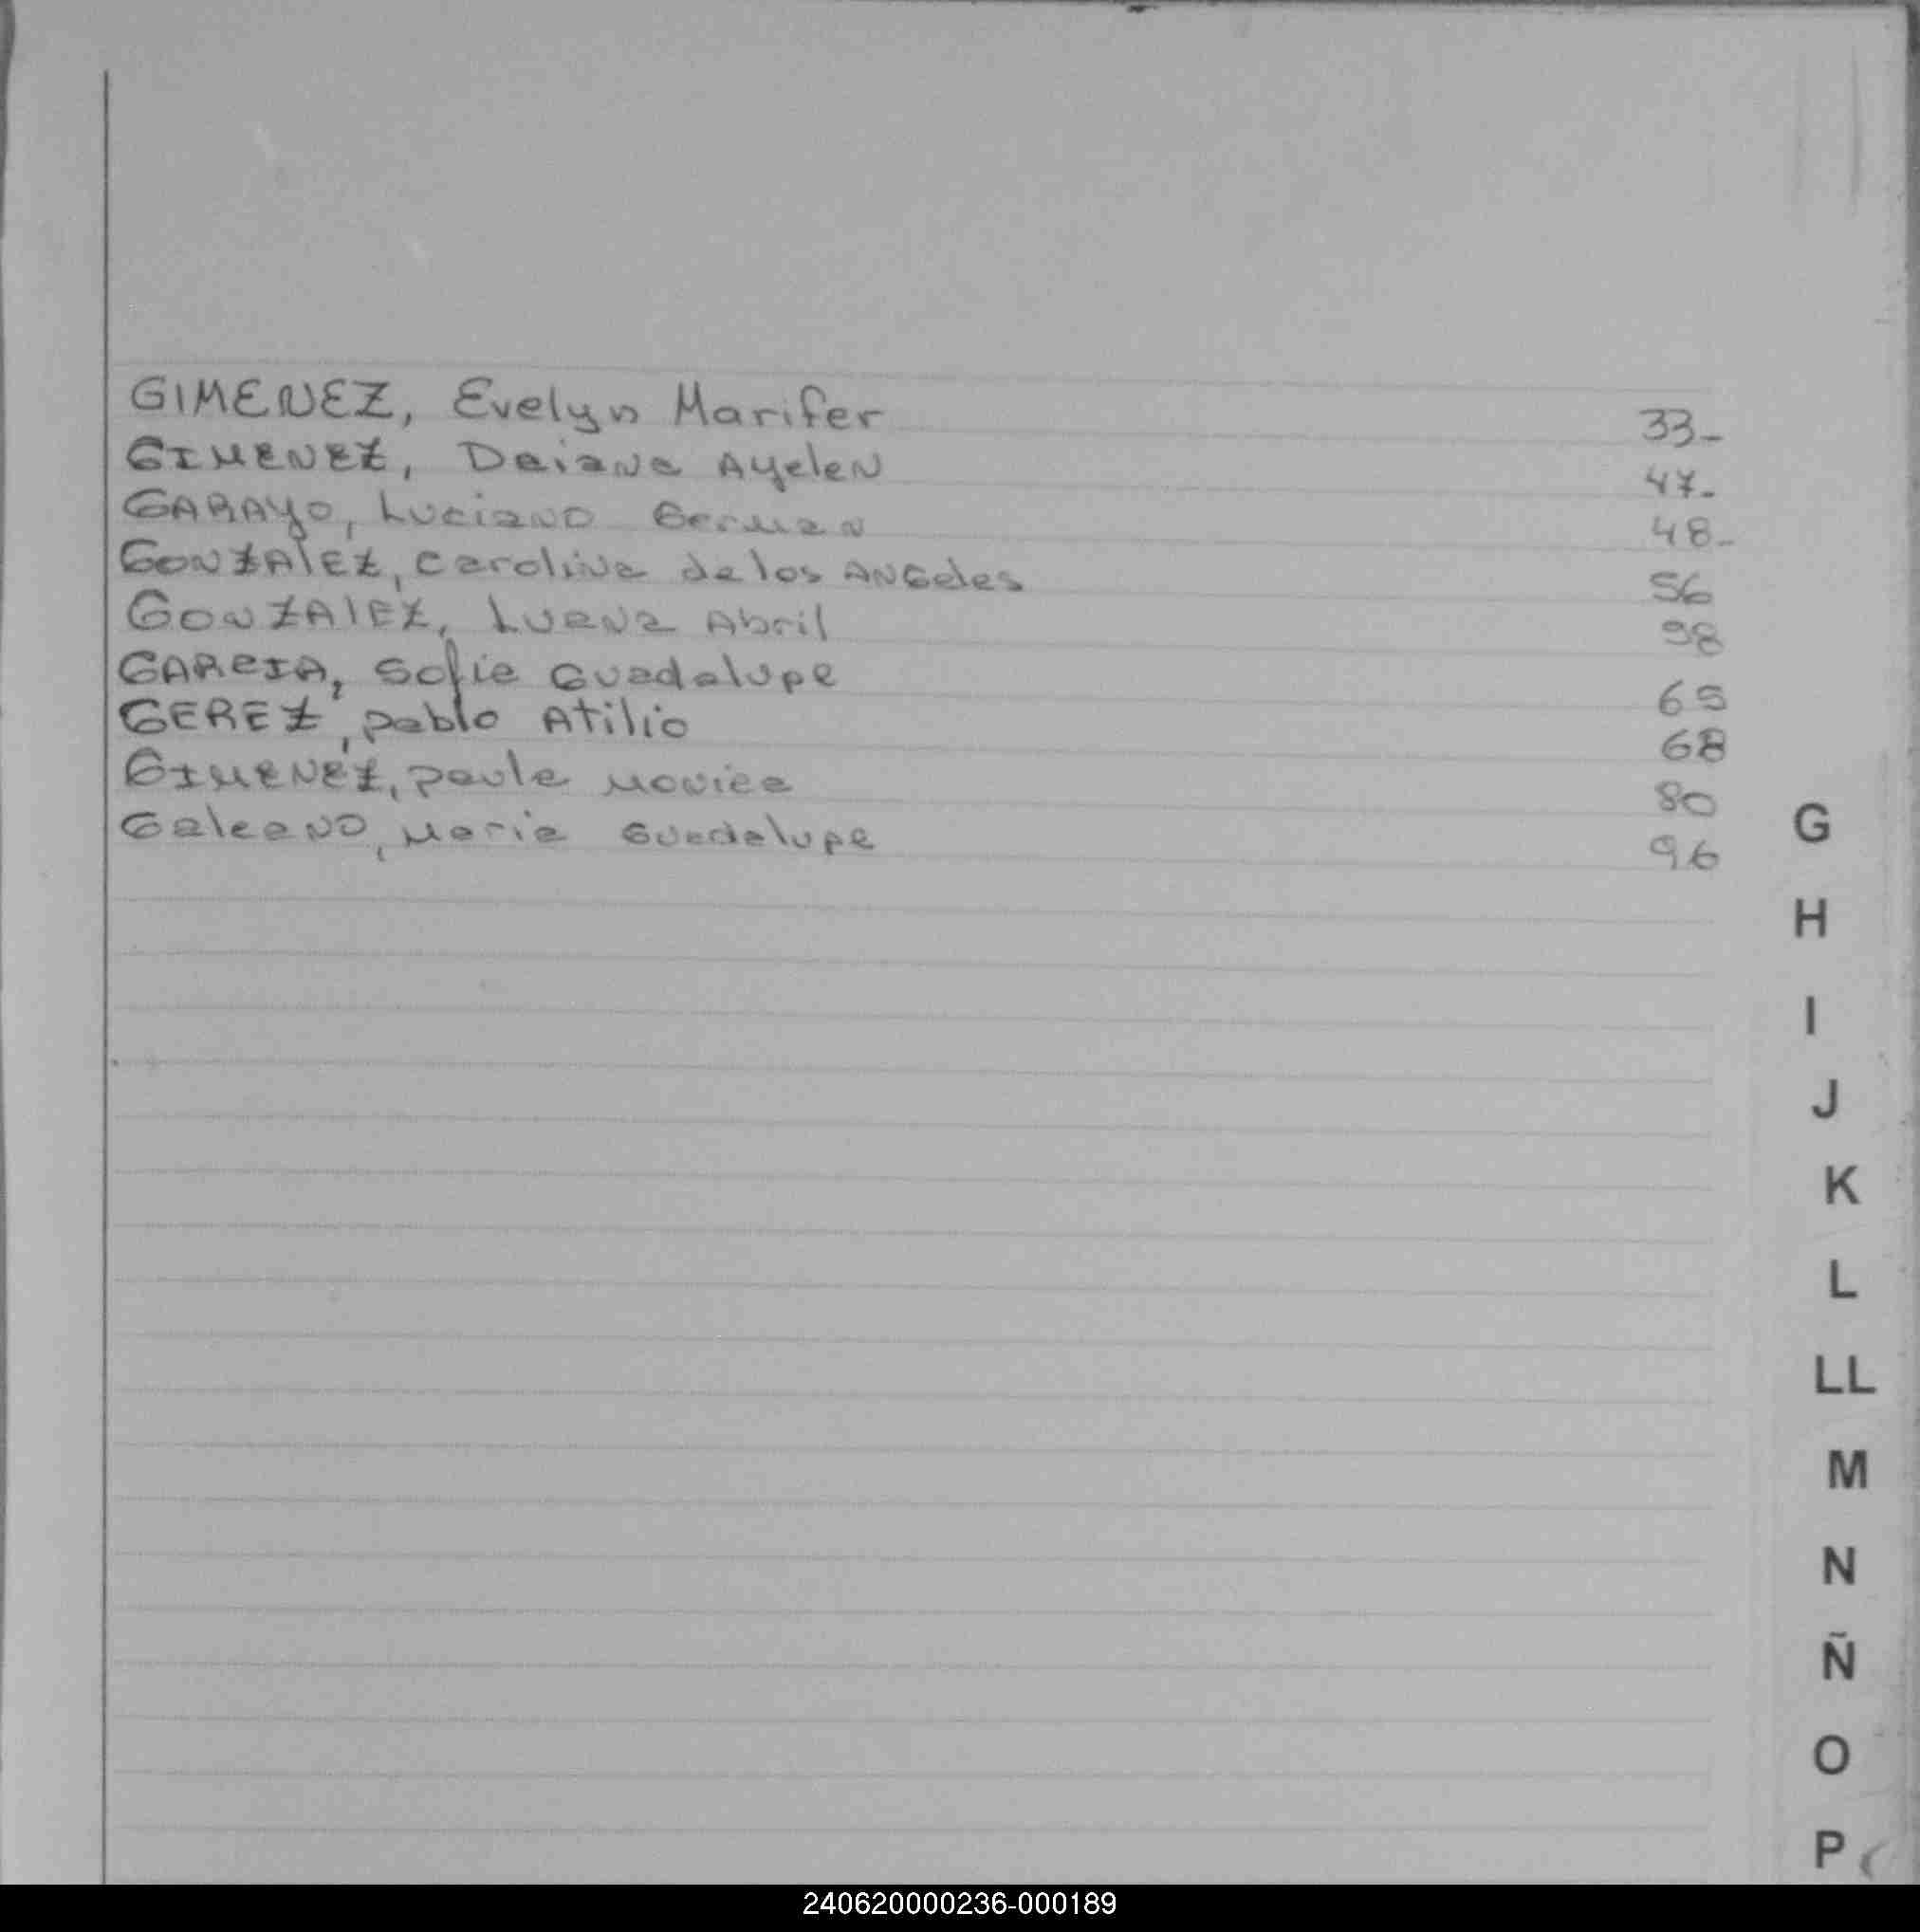 GIMENEZ, Evelyn Marifer 33-
GIMENEZ, Daiana Ayelen 47-
GARAYO, Luciano German 48-
GONZALEZ, Carolina de los ANGeles 56
GONZALEZ, Luana Abril 98
GARCIA, Sofia Guadalupe 65
GEREZ, pablo Atilio 68
GIMENEZ, paula Monica 80
Galeano, Maria Guadalupe 96
G
H
I
J
K
L
LL
M
N
Ñ
O
P
240620000236-000189